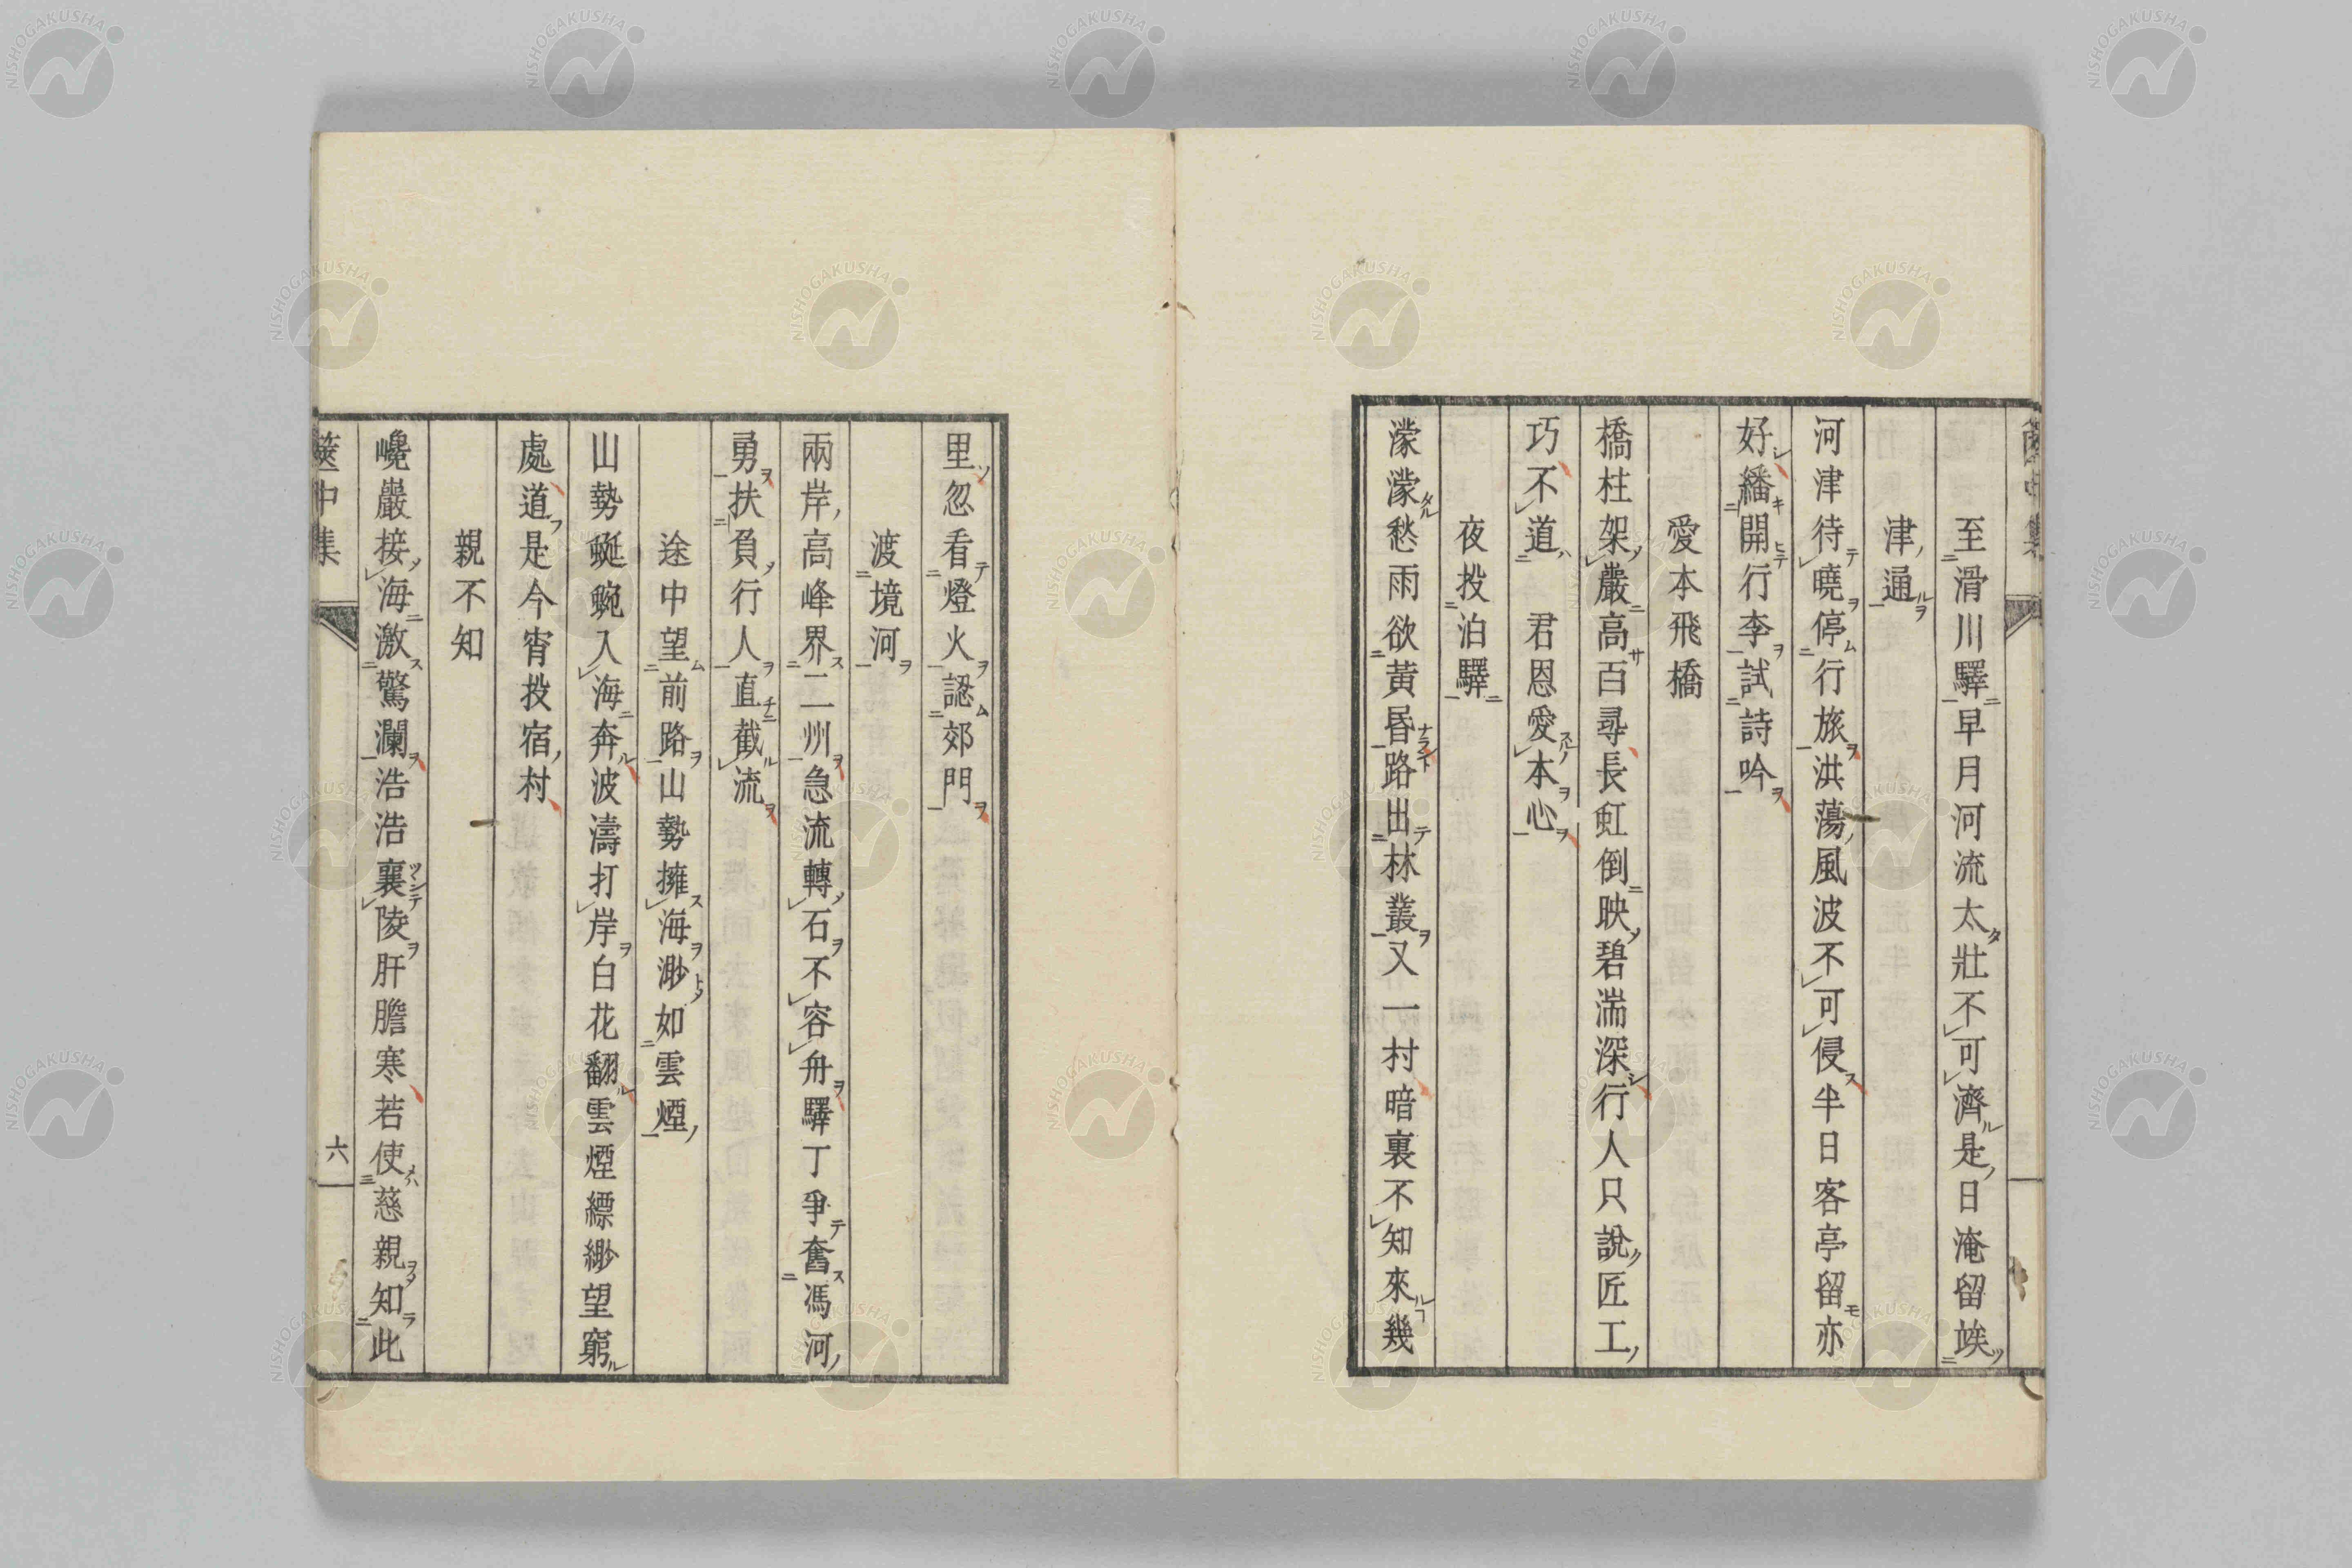 至滑川驛早月河流太壯不可濟是日淹留竢
津通
河津待曉停行旅洪蕩風波不可侵半日客亭留亦
好繙開行李試詩吟
愛本飛橋
橋柱架巖高百尋長虹倒映碧湍深行人只說匠工
巧不道君恩愛本心
夜投泊驛
濛濛愁雨欲黃昏路出林叢又一村暗裏不知來幾
里忽看燈火認郊門
渡境河
兩岸高峰界二州急流轉石不容舟驛丁爭奮馮河
勇扶負行人直截流
途中望前路山勢擁海渺如雲煙
山勢蜒蜿入海奔波濤打岸白花翻雲煙縹緲望窮
處道是今宵投宿村
親不知
巉巖接海激驚瀾浩浩襄陵肝膽寒若使慈親知此
篋中集
六
NISHOGAKUSHA